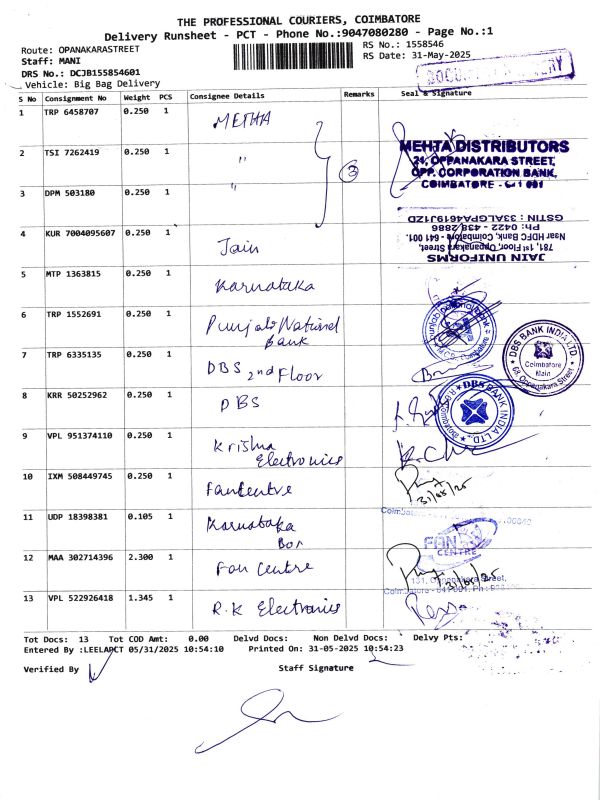 THE PROFESSIONAL COURIERS, COIMBATORE
Delivery Runsheet - PCT - Phone No.:9047080280 - Page No.:1
Route: OPANAKARASTREET
RS No.: 1558546
Staff: MANI
RS Date: 31-May-2025
DRS No.: DCJB155854601
Vehicle: Big Bag Delivery
S No Consignment No Weight PCS Consignee Details Remarks Seal & Signature
1 TRP 6458707 0.250 1 METHA
2 TSI 7262419 0.250 1 "
3 DPM 503180 0.250 1 "
3
MEHTA DISTRIBUTORS
24, OPPANAKARA STREET,
OPP. CORPORATION BANK,
COIMBATORE - 641 001
4 KUR 7004095607 0.250 1 Jain
JAIN UNIFORMS
781, 1st Floor, Oppanakara Street,
Near HDFC Bank, Coimbatore - 641 001.
Ph: 0422 - 438 2886
GSTIN : 33ALGPA4619J1ZD
5 MTP 1363815 0.250 1 Karnataka
6 TRP 1552691 0.250 1 Punjab National
Bank
7 TRP 6335135 0.250 1 DBS 2nd Floor
DBS BANK INDIA LTD
Coimbatore
Main
8 KRR 50252962 0.250 1 DBS
DBS BANK INDIA LTD.,
9 VPL 951374110 0.250 1 Krisha
Electronics
10 IXM 508449745 0.250 1 Fancentre
31/05/25
11 UDP 18398381 0.105 1 Karnataka
Bor
FAN
CENTRE
12 MAA 302714396 2.300 1 Fan Centre
31/05/25
131, Oppanakara Street,
Coimbatore - 641 001. Ph:
13 VPL 522926418 1.345 1 R.K Electronics
Tot Docs: 13 Tot COD Amt: 0.00 Delvd Docs: Non Delvd Docs: Delvy Pts:
Entered By :LEELAPCT 05/31/2025 10:54:10 Printed On: 31-05-2025 10:54:23
Verified By Staff Signature